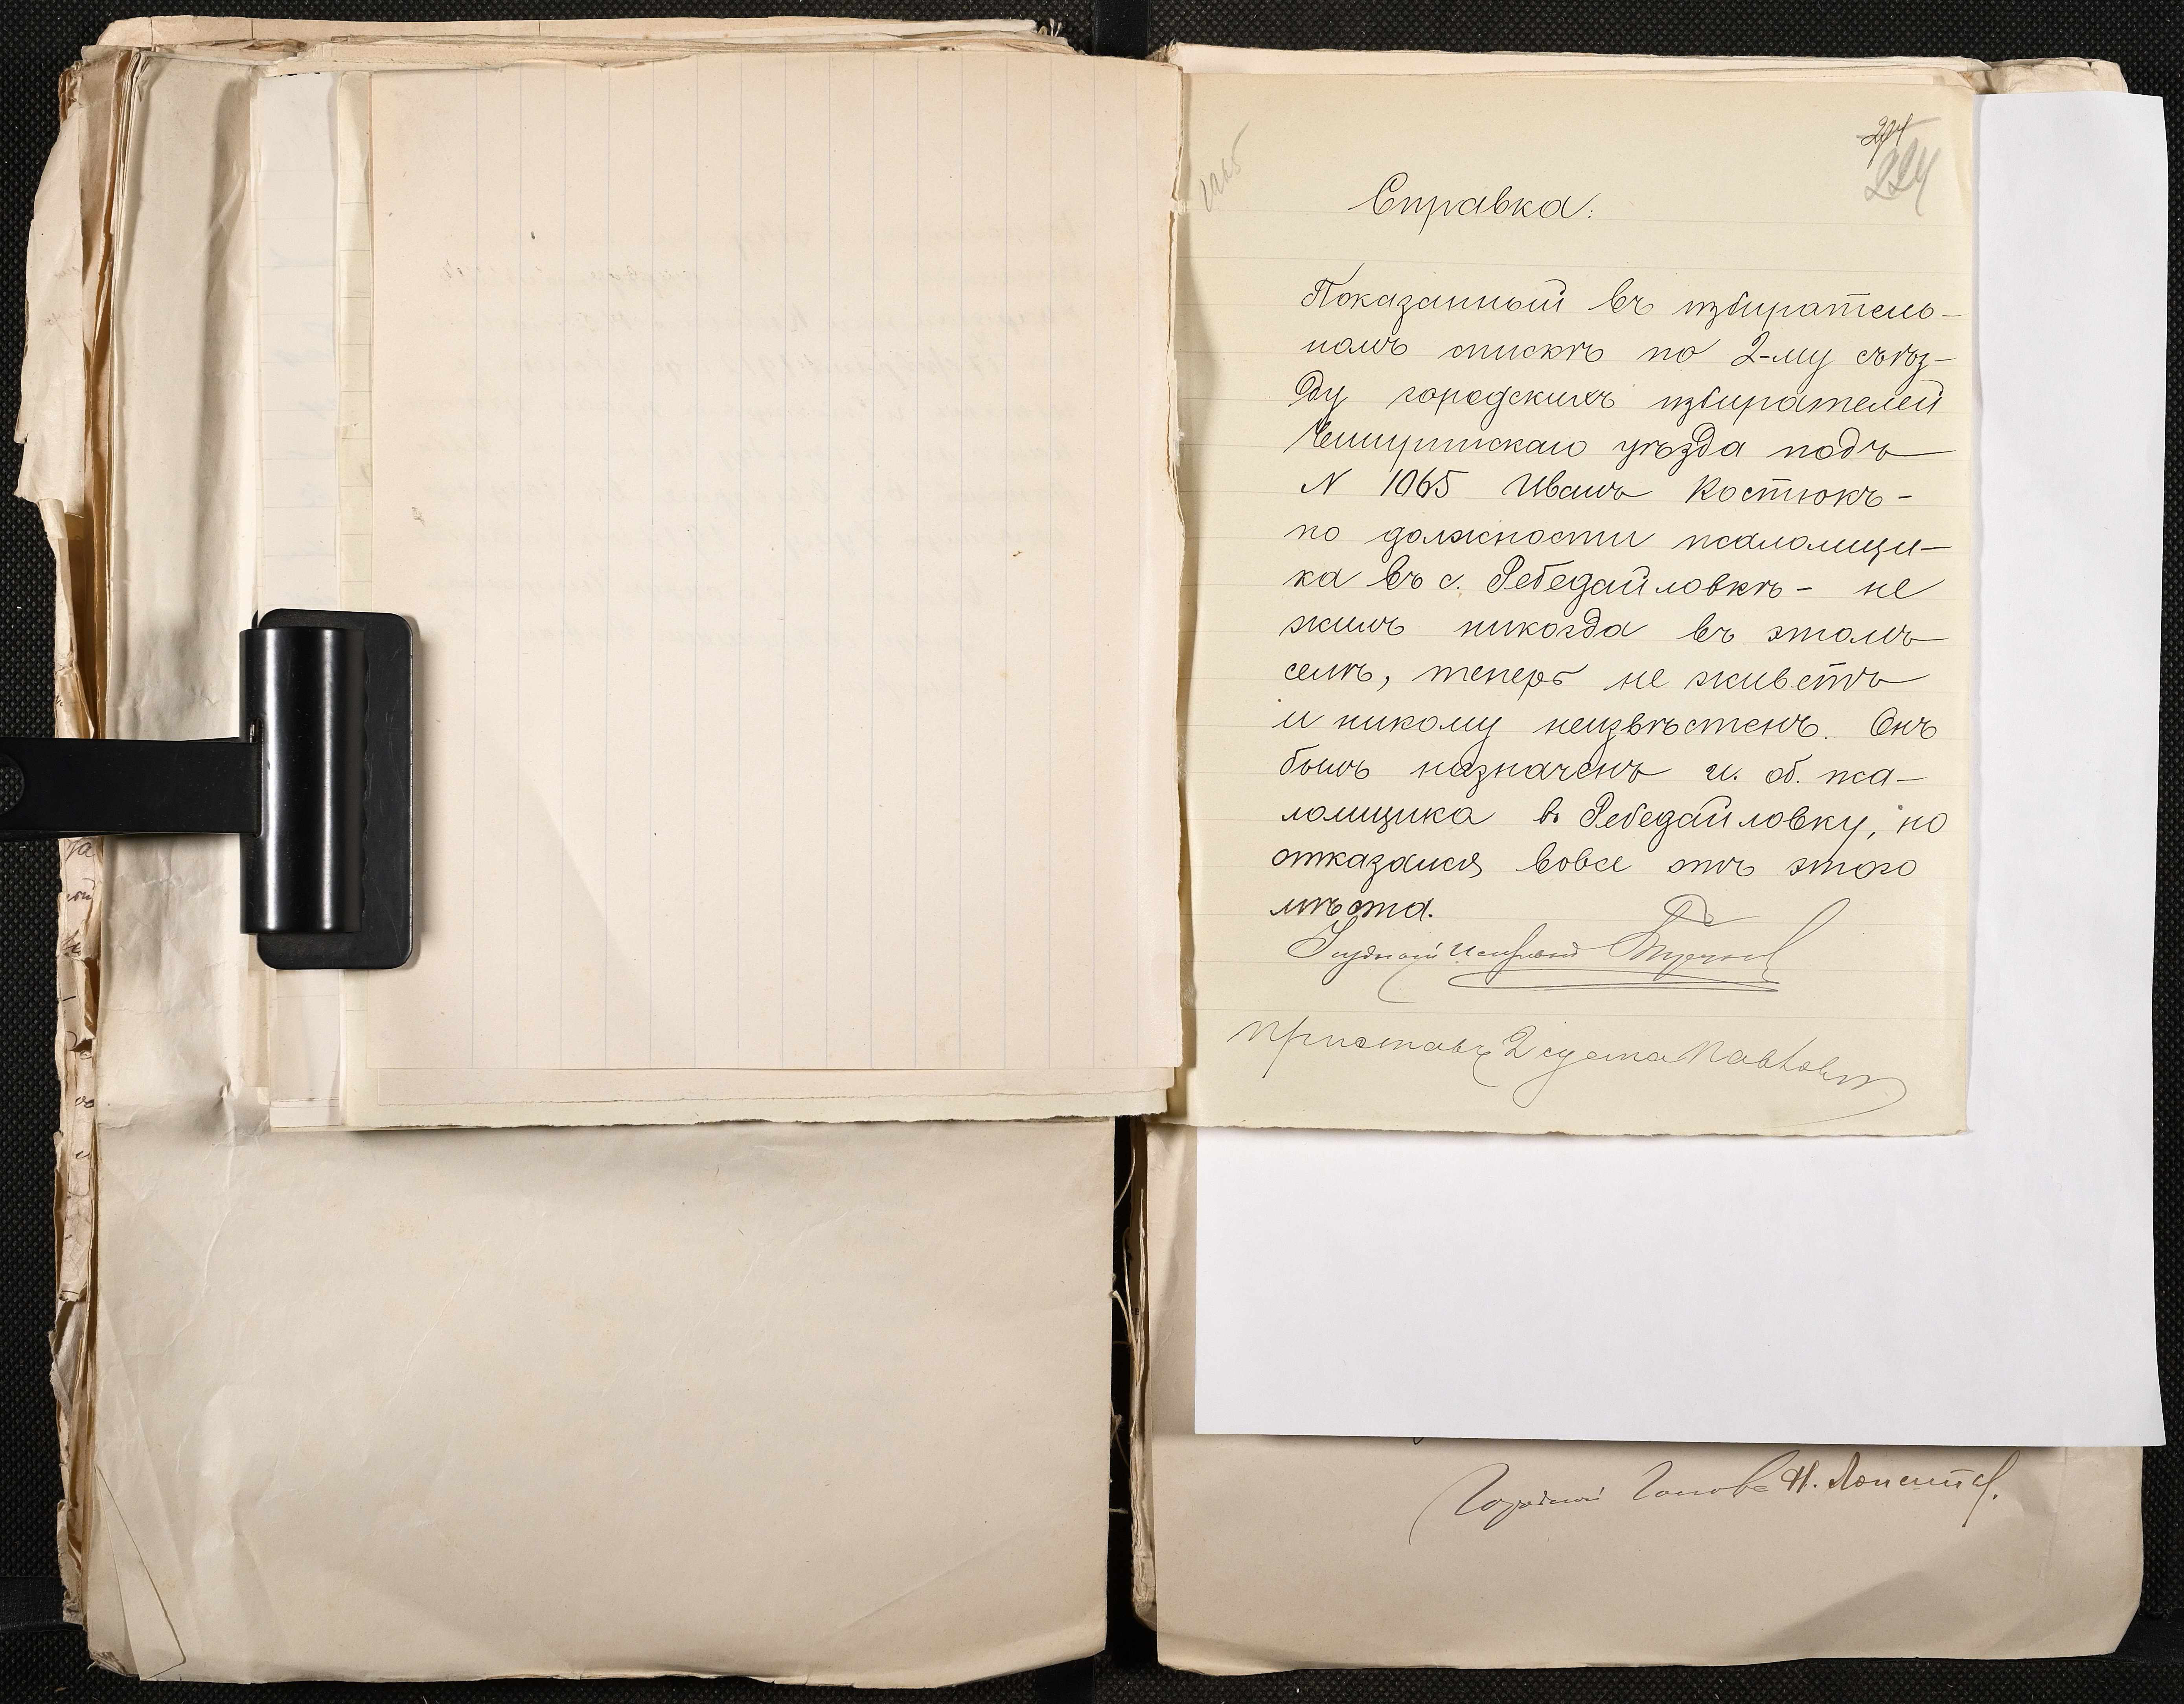 224
Справка:
Показанный въ избиратель-
номъ спискѣ по 2-му съѣз-
ду городскихъ избирателей
Чигиринскаго уѣзда подъ
N 1065 Иванъ Костюкъ -
по должности псаломщи-
ка въ с. Ребедайловкѣ - не
жилъ никогда въ этомъ
селѣ, теперь не живетъ
и никому неизвѣстенъ. Онъ
былъ назначенъ и. об. пса-
ломщика въ Ребедайловку, но
отказался вовсе отъ этого
мѣста.
Уѣздный Исправникъ
Приставъ 2 Павловичъ
Голова Н.